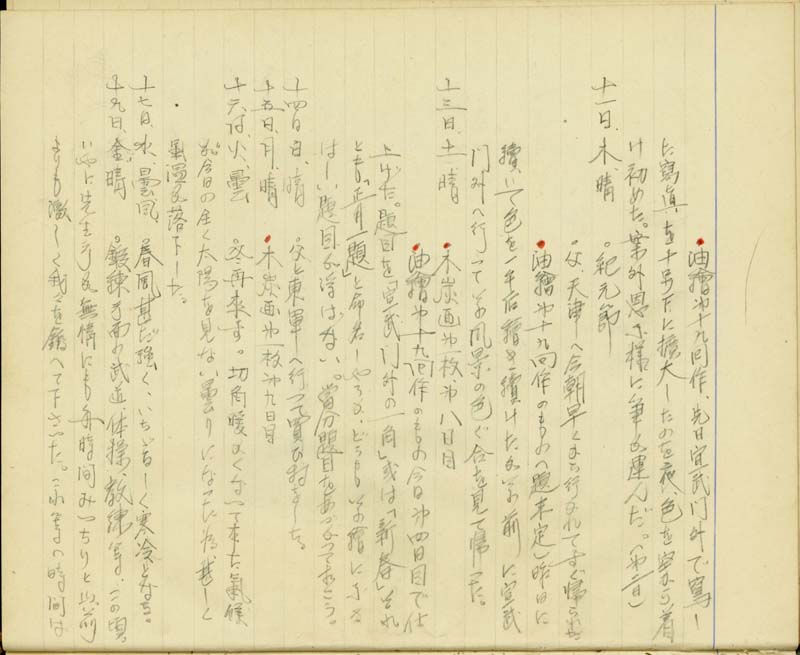 油繪㐧十九回作、先日宣武門外で寫し
た寫眞を十号下に擴大したのを夜、色を着
け初めた。案外思ふ様に筆が運んだ。(㐧一日)
十一日、木晴 。紀元節
。父、天津へ今朝早く行かれてすぐ帰られた
油繪㐧十九回作のもの(題未定)昨日に
續いて色を午后續け
門外へ行って風景の色ぐ合を見て帰った。
十三日、土、晴 木炭画㐧一枚、㐧八日目
油繪㐧十九回作のもの今日㐧四日目で仕
上げた。題目を「宣武門外の一角」或は「新春」それ
とも「命名しやうか、どうもいゝ繪にふさ
はしい題目が浮ばない。當分題目
十四日、日、晴 父と東單へ行って買ひ物をした。
十五日、月、晴 木炭画㐧一枚㐧九日目
十六、火、曇 切角暖かくなって来た氣候
が今日の全く太陽を見ない曇りになった為、
氣温が落下した。
十七日、水、曇風、 春風甚だ強く、いちじるしく寒冷となる。
十九日、金、晴 。鍛練 武道、体操、教練等、この頃
いやに先生方が無情にも毎時間みっちりと以前
よりも激しく我々を鍛へて下さった。これ等の時間は